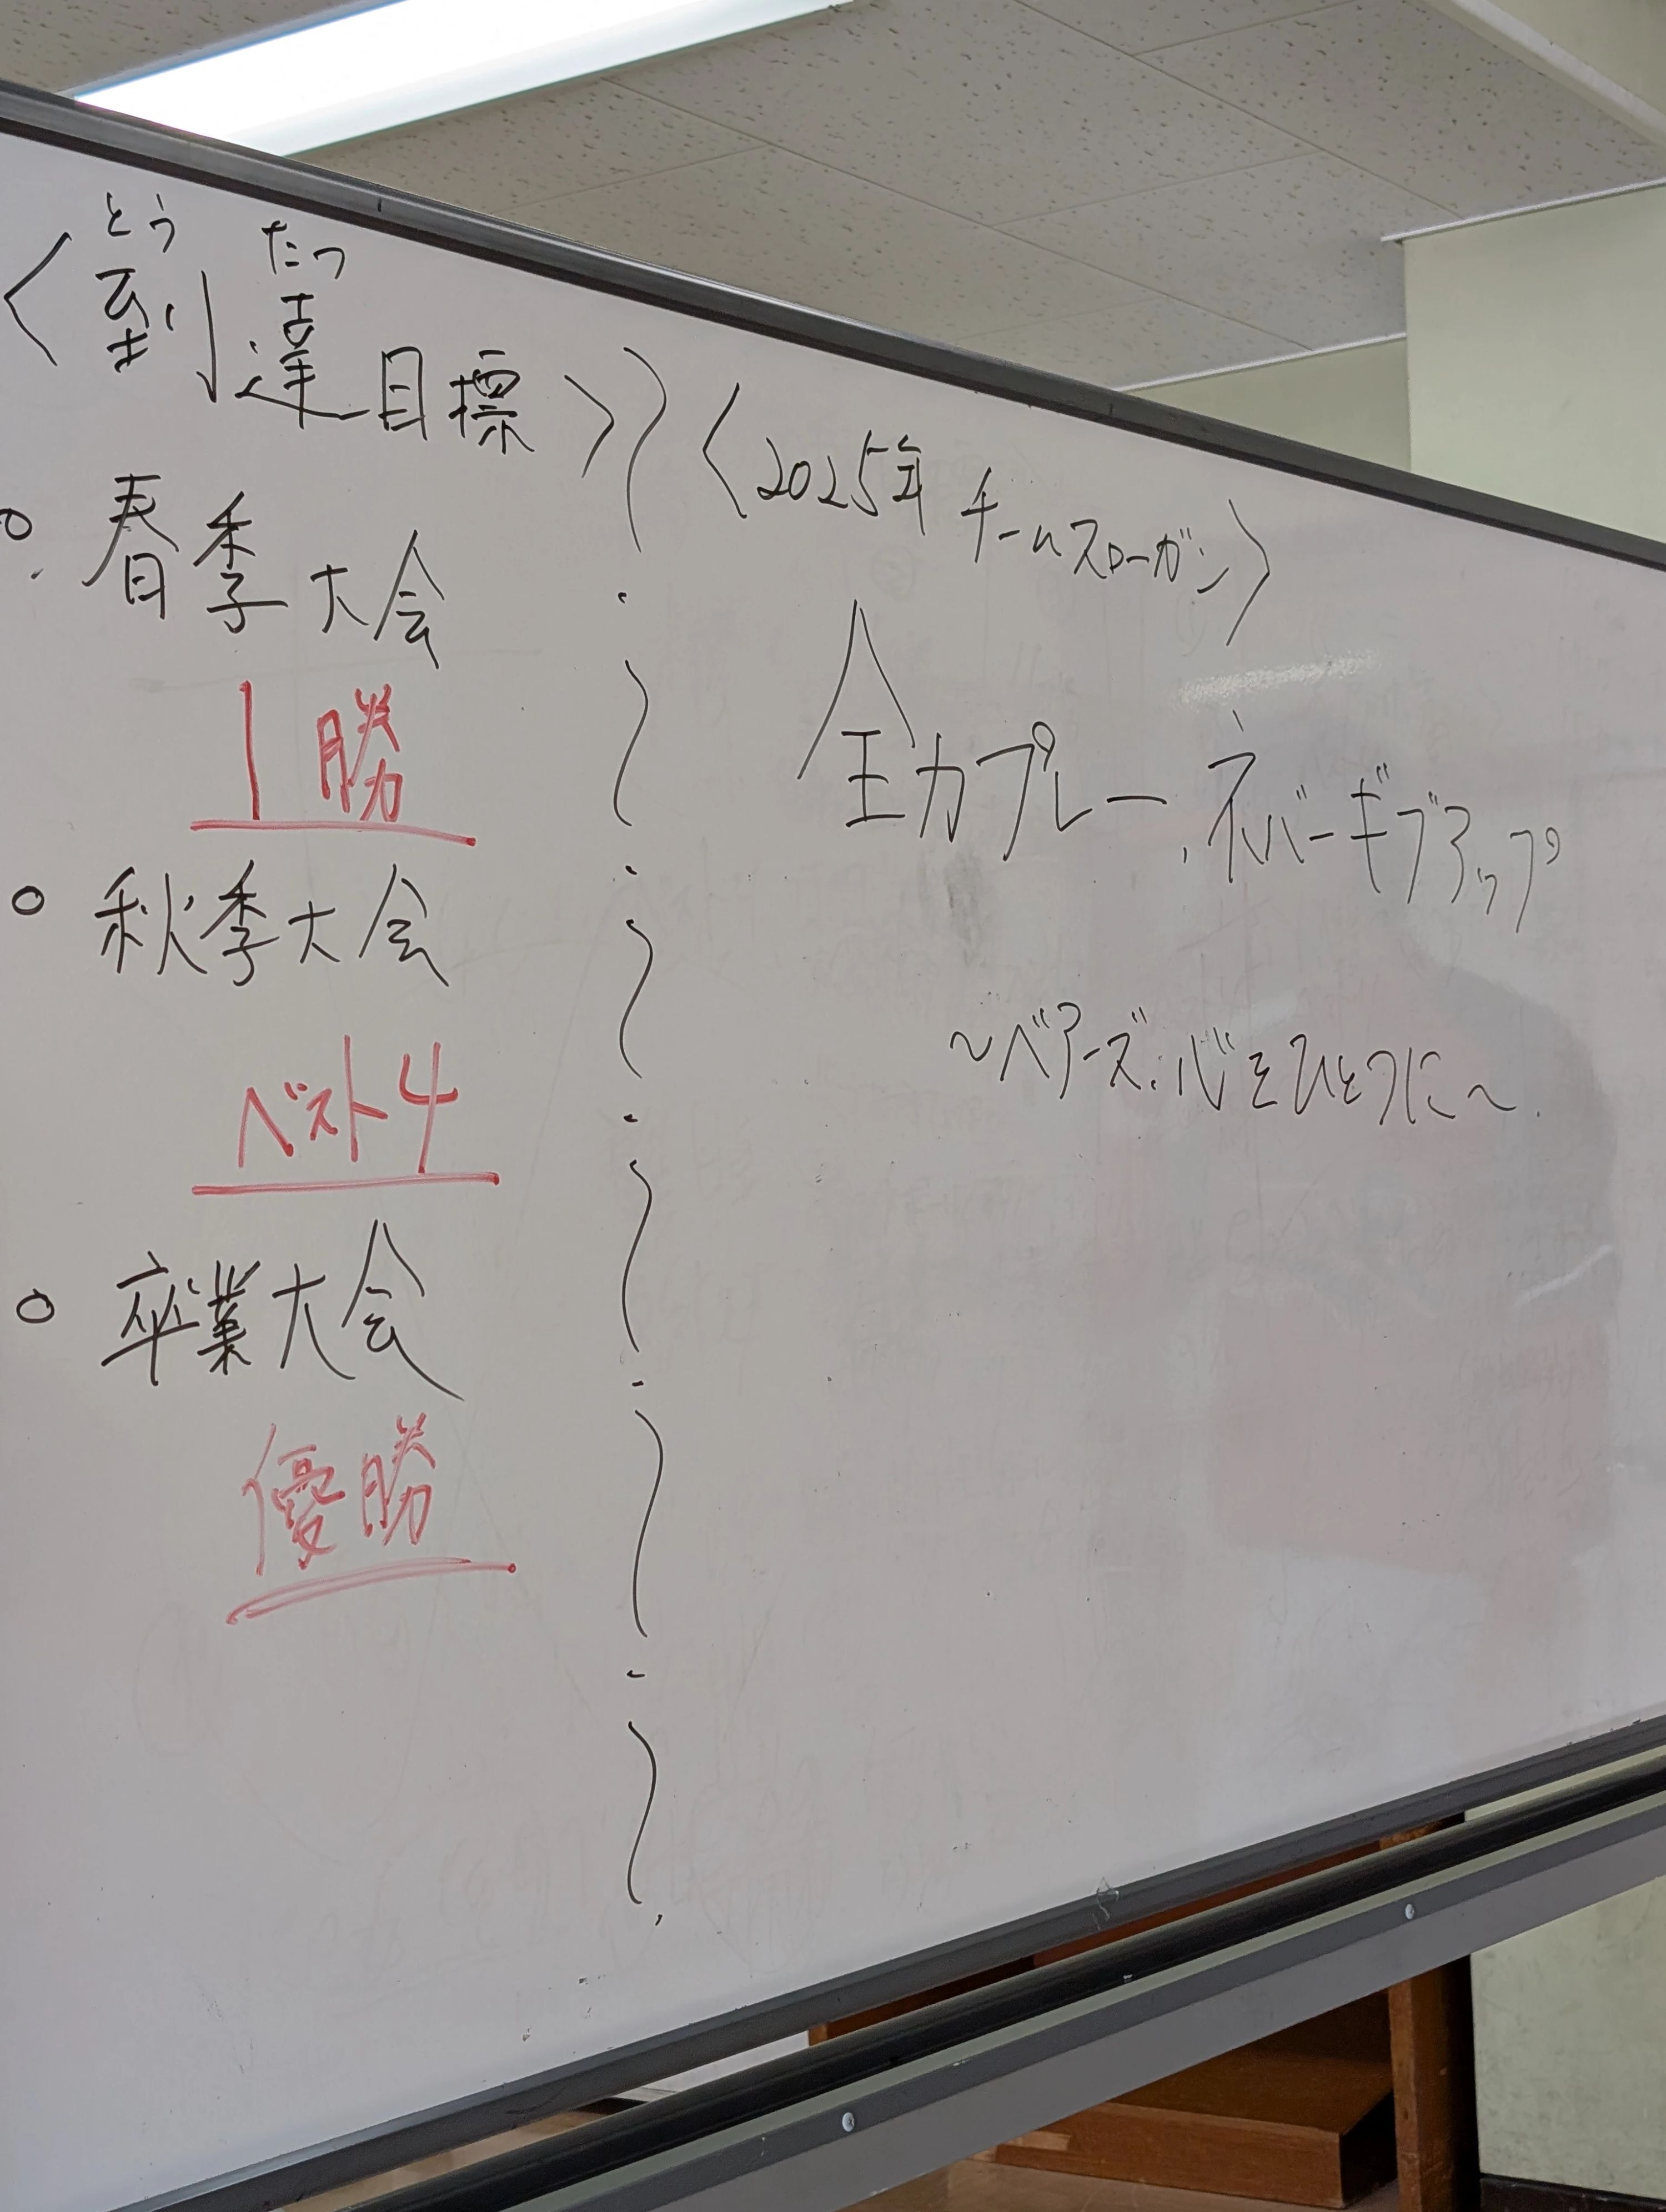 とう たつ
<到達目標>
○ 春季大会
1勝
○ 秋季大会
ベスト4
○ 卒業大会
優勝
<2025年 チームスローガン>
全力プレー、ネバーギブアップ
～ベアーズ:心をひとつに～